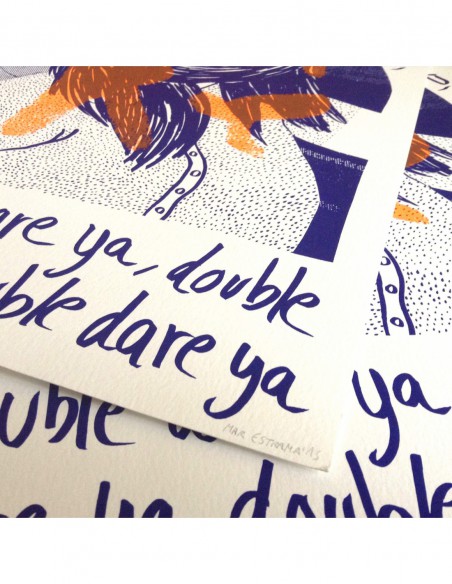 are ya, double
ble dare ya
MAR ESTRAMA'15
ya
uble
ya, double